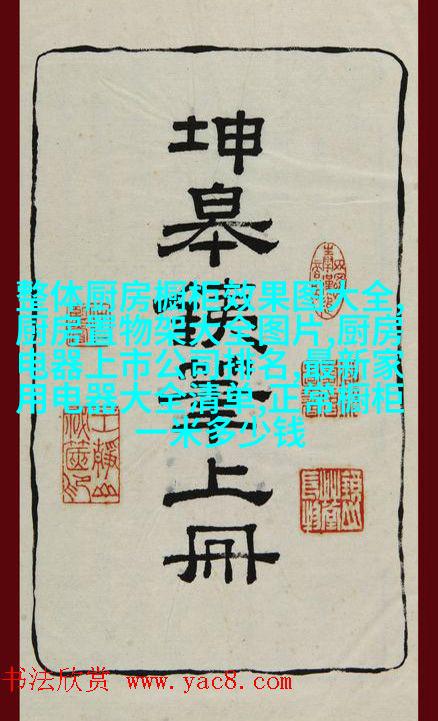 坤皋鐵筆上冊
整体厨房橱柜效果图大全,
厨房置物架大全图片,厨房
电器上市公司排名,最新家
用电器大全清单,正常橱柜
一米多少钱
书法欣赏 www.yac8.com